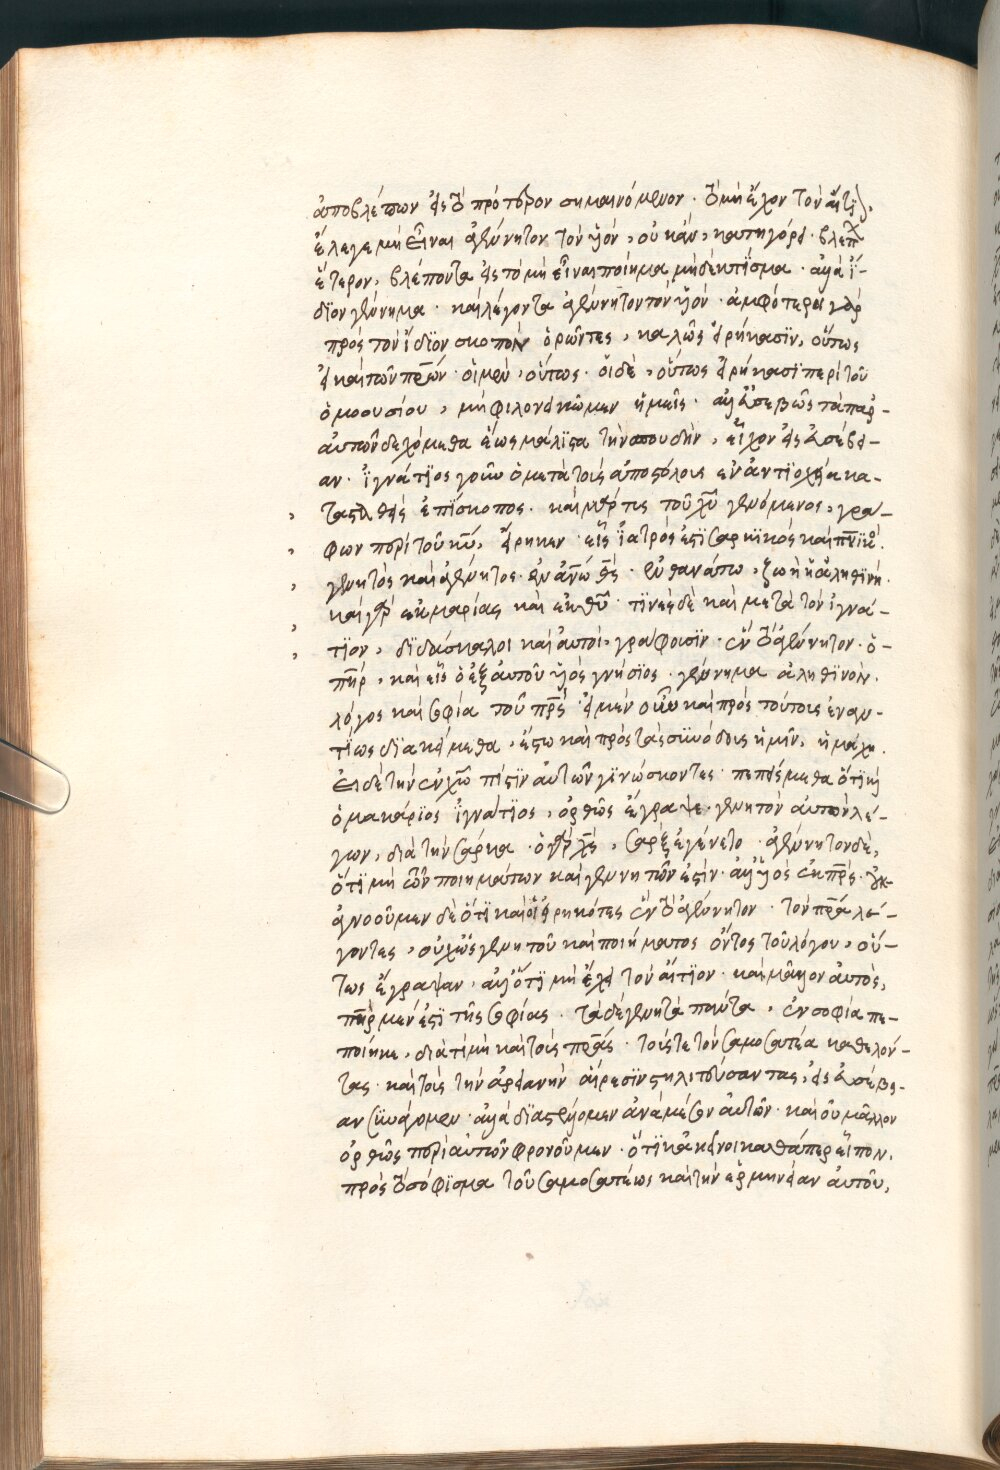 ἀποβλέπων εἰς τὸ πρότερον σημαινόμενον · τὸ μὴ ἔχον τὸν αἴτϊον,
ἔλεγε μὴ εἶναι ἀγένητον τὸν υἱὸν, οὐκ ἂν, κατηγόρει · βλέπων
ἕτερον, βλέποντα εἰς τὸ μὴ εἶναι ποίημα μηδὲ κτΐσμα · ἀλλὰ ἀΐ-
δϊον γέννημα · καὶ λέγοντα ἀγένητον τὸν υἱόν · ἀμφότεροι γὰρ
πρὸς τὸν ἴδϊον σκοπὸν ὁρῶντες, καλῶς εἰρήκασϊν, οὕτως
εἰ καὶ τῶν πρ̅ων · οἱ μὲν, οὕτως · οἱ δὲ, οὕτως εἰρήκασϊ περὶ τοῦ
ὁμοουσίου, μὴ φιλονεικῶμεν ἡμεῖς · ἀλλ' εὐσεβῶς τὰ παρ-
αὐτῶν δεχόμεθα ἕως μάλϊστα τὴν σπουδὴν, εἶχον εἰς εὐσέβει-
αν · ἰγνάτϊος γοῦν ὁ μετὰ τοὺς ἀποστόλους ἐν ἀντϊοχείᾳ κα-
τασταθεὶς ἐπΐσκοπος · καὶ μάρτυς τοῦ χυ̅ γενόμενος, γρά-
φων περὶ τοῦ κυ̅, εἴρηκεν · εἷς ἰατρός ἐστϊ σαρκϊκὸς καὶ πν̅ϊκὸς ·
γενητὸς καὶ ἀγένητος · ἐν ἀν̅ω θς̅ · ἐν θανάτω, ζωὴ ἀληθϊνή ·
καὶ γὰρ ἐκ μαρίας καὶ ἐκ θυ̅ · τϊνὲς δὲ καὶ μετὰ τὸν ἰγνά-
τϊον, δϊδάσκαλοι καὶ αὐτοὶ, γράφουσϊν · ἓν τὸ ἀγένητον · ὁ
πη̅ρ, καὶ εἷς ὁ ἐξ αὐτοῦ υἱὸς γνήσϊος · γέννημα ἀληθϊνὸν ·
λόγος καὶ σοφία τοῦ πρ̅ς · εἰ μὲν οὖν καὶ πρὸς τούτους ἐναν-
τΐως δϊακείμεθα, ἔστω καὶ πρὸς τὰς συνόδους ἡμῖν, ἡ μάχη ·
εἰ δὲ τὴν ἐν χω̅ πίστϊν αὐτῶν γϊνώσκοντες · πεπείσμεθα ὅτϊ καὶ
ὁ μακάρϊος ἰγνάτϊος, ὀρθῶς ἔγραψε · γενητὸν αὐτὸν λέ-
γων, δϊὰ τὴν σάρκα · ὁ γὰρ χς̅, σὰρξ ἐγένετο · ἀγένητον δὲ,
ὅτϊ μὴ τῶν ποιημάτων καὶ γενητῶν ἐστϊν · ἀλλ' υἱὸς ἐκ πρ̅ς · οὐκ
ἀγνοοῦμεν δὲ ὅτϊ καὶ οἱ εἰρηκότες ἓν τὸ ἀγένητον · τὸν πρ̅α λέ-
γοντες, οὐχ ὡς γενητοῦ καὶ ποιήματος ὄντος τοῦ λόγου, οὕ-
τως ἔγραψαν · ἀλλ' ὅτϊ μὴ ἔχει τὸν αἴτϊον · καὶ μᾶλλον αὐτὸς,
πη̅ρ μέν ἐστϊ τῆς σοφίας · τὰ δὲ γενητὰ πάντα, ἐν σοφία πε-
ποίηκε, δϊὰ τί μὴ καὶ τοὺς πρ̅ας · τούς τε τὸν σαμοσατέα καθελόν-
τας · καὶ τοὺς τὴν ἀρειανὴν αἵρεσϊν στηλιτεύσαντας, εἰς εὐσέβει-
αν συνάγομεν · ἀλλὰ δϊαστέλλομεν ἀνάμεσον αὐτῶν · καὶ οὐ μᾶλλον
ὀρθῶς περὶ αὐτῶν φρονοῦμεν · ὅτϊ κἀκεῖνοι καθάπερ εἶπον,
πρὸς τὸ σόφϊσμα τοῦ σαμοσατέως καὶ τὴν ἑρμηνείαν αὐτοῦ,